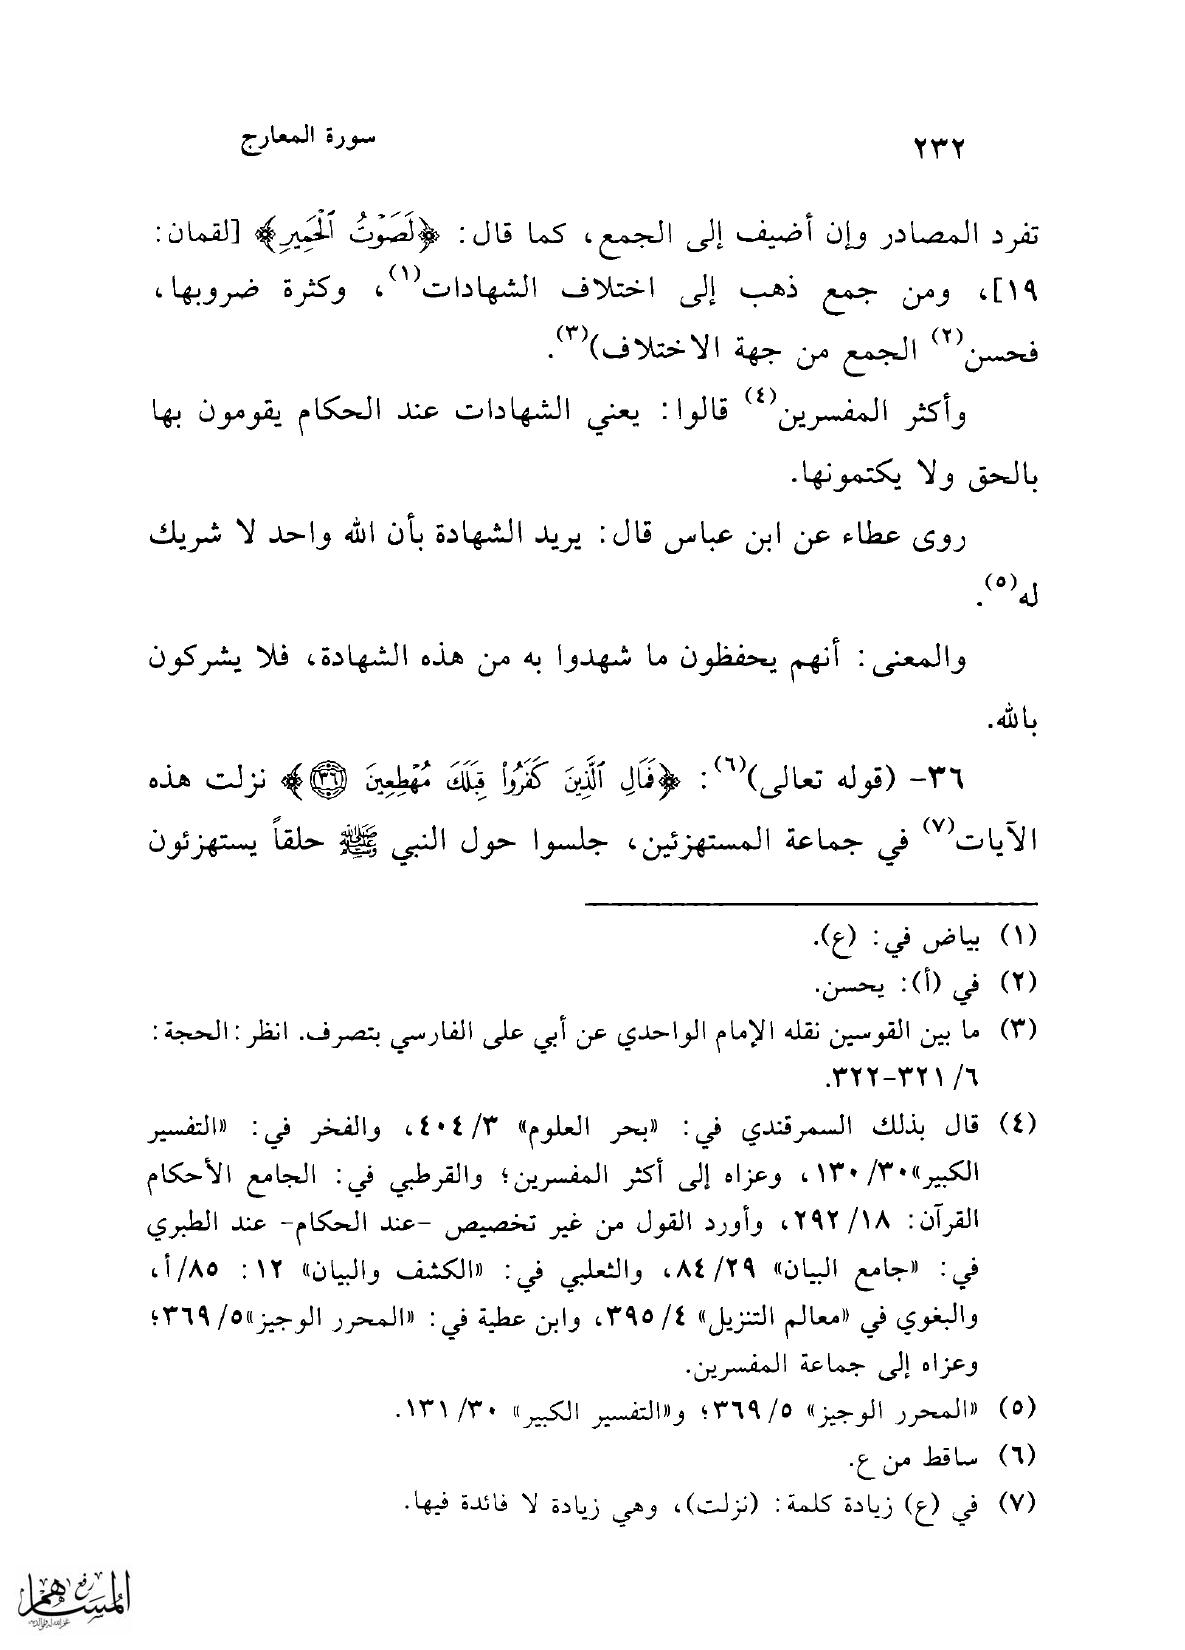 ٢٣٢ سورة المعارج
تفرد المصادر وإن أضيف إلى الجمع، كما قال: ﴿لَصَوْتُ ٱلْحَمِيرِ﴾ [لقمان:
١٩]، ومن جمع ذهب إلى اختلاف الشهادات(١)، وكثرة ضروبها،
فحسن(٢) الجمع من جهة الاختلاف)(٣).
وأكثر المفسرين(٤) قالوا: يعني الشهادات عند الحكام يقومون بها
بالحق ولا يكتمونها.
روى عطاء عن ابن عباس قال: يريد الشهادة بأن الله واحد لا شريك
له(٥).
والمعنى: أنهم يحفظون ما شهدوا به من هذه الشهادة، فلا يشركون
بالله.
٣٦- (قوله تعالى)(٦): ﴿فَمَالِ ٱلَّذِينَ كَفَرُوا۟ قِبَلَكَ مُهْطِعِينَ ٣٦﴾ نزلت هذه
الآيات(٧) في جماعة المستهزئين، جلسوا حول النبي ﷺ حلقاً يستهزئون
(١) بياض في: (ع).
(٢) في (أ): يحسن.
(٣) ما بين القوسين نقله الإمام الواحدي عن أبي على الفارسي بتصرف. انظر: الحجة:
٦/ ٣٢١-٣٢٢.
(٤) قال بذلك السمرقندي في: «بحر العلوم» ٣/ ٤٠٤، والفخر في: «التفسير
الكبير»٣٠/ ١٣٠، وعزاه إلى أكثر المفسرين؛ والقرطبي في: الجامع الأحكام
القرآن: ١٨/ ٢٩٢، وأورد القول من غير تخصيص -عند الحكام- عند الطبري
في: «جامع البيان» ٢٩/ ٨٤، والثعلبي في: «الكشف والبيان» ١٢: ٨٥/أ،
والبغوي في «معالم التنزيل» ٤/ ٣٩٥، وابن عطية في: «المحرر الوجيز»٥/ ٣٦٩؛
وعزاه إلى جماعة المفسرين.
(٥) «المحرر الوجيز» ٥/ ٣٦٩؛ و«التفسير الكبير» ٣٠/ ١٣١.
(٦) ساقط من ع.
(٧) في (ع) زيادة كلمة: (نزلت)، وهي زيادة لا فائدة فيها.